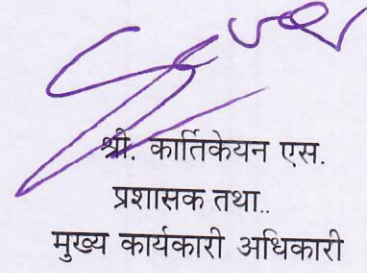 श्री. कार्तिकेयन एस.
प्रशासक तथा..
मुख्य कार्यकारी अधिकारी